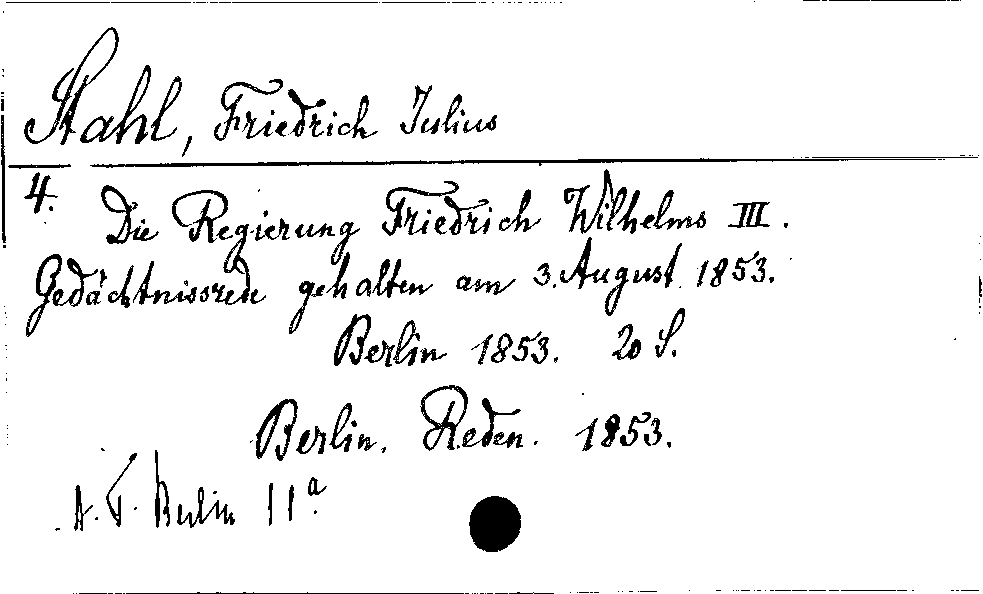 Stahl, Friedrich Julius
4. Die Regierung Friedrich Wilhelms III.
Gedächtnissrede gehalten am 3. August 1853.
Berlin 1853. 20 S.
Berlin. Reden. 1853.
A. F. Berlin 11a.